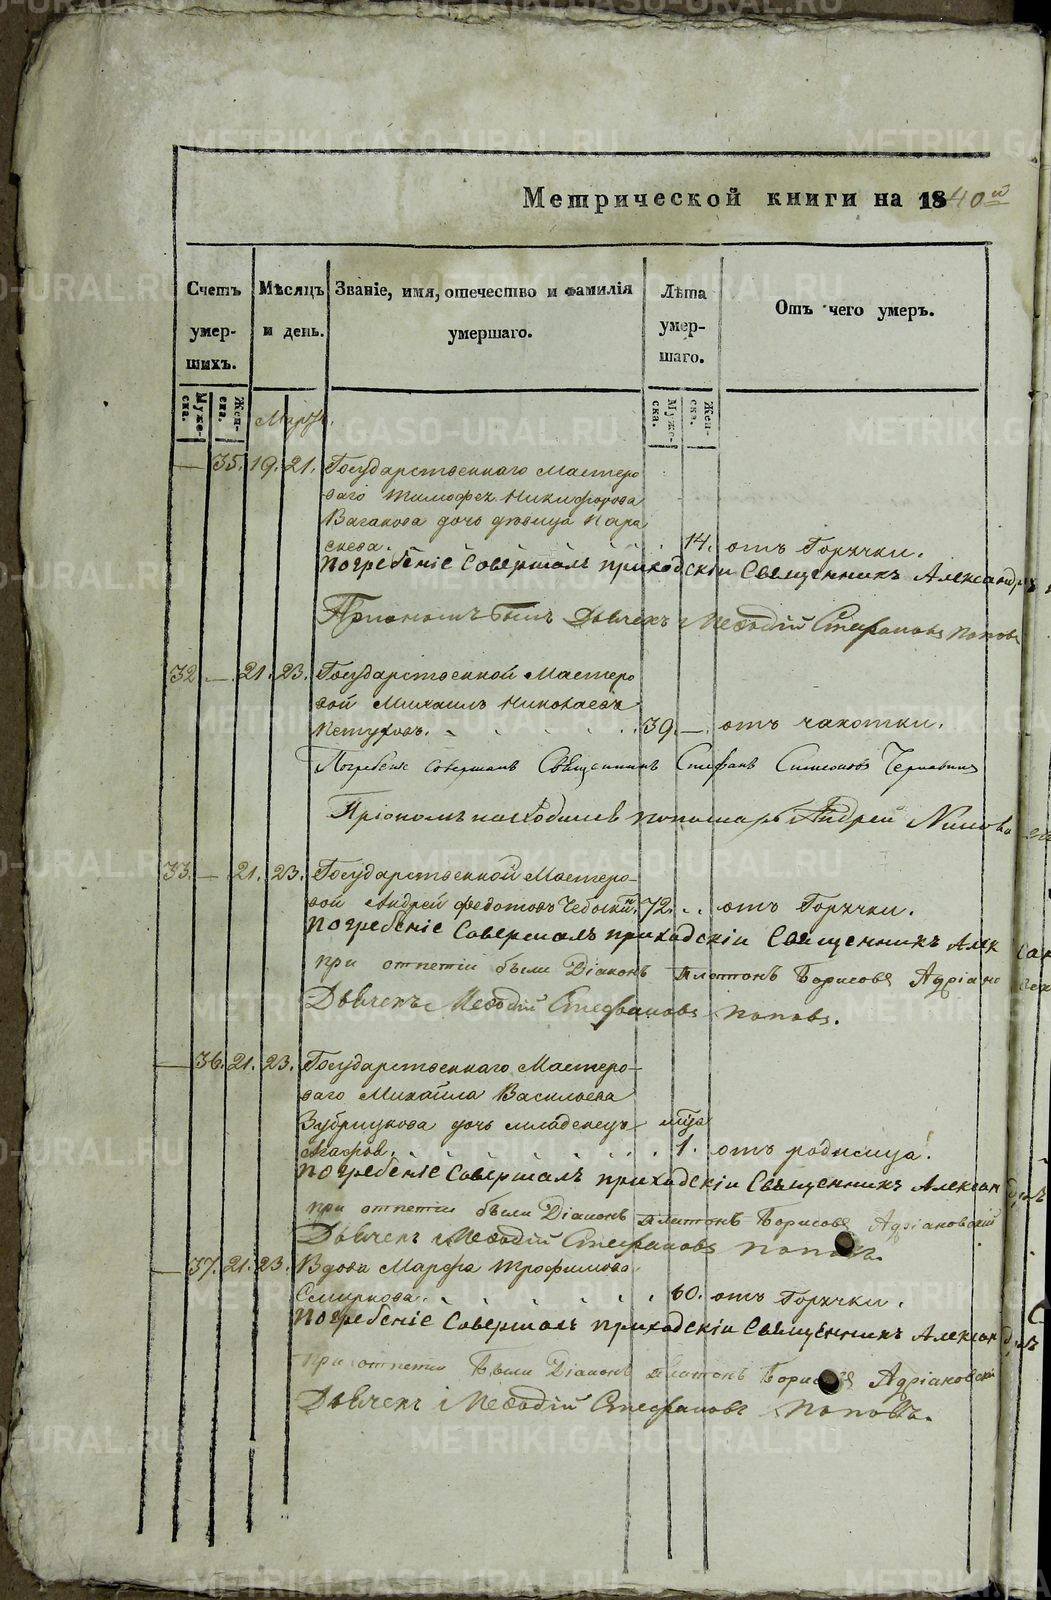 Метрической книги на 1840й
Счетъ умер-шихъ.
Мѣсяцъ и день.
Званіе, имя, отечество и фамилія умершаго.
Лѣта умер-шаго.
Отъ чего умеръ.
Муже-ска.
Жен-ска.
Муже-ска.
Жен-ска.
Мартъ.
— 35. 19. 21. Государственнаго Мастеро
ваго Тимофея Никифорова
Ваганова дочь девица Пара
скева. 14. отъ Горячки.
Погребеніе Совершалъ приходскіи Священникъ Александръ
При ономъ былъ Дьячекъ Меѳодій Стефановъ Поповъ
32 — 21. 23. Государственной Мастеро
вой Михаилъ Николаевъ
Петуховъ. 39. — отъ чахотки.
Погребеніе совершалъ Священникъ Стефанъ Симеоновъ Чернавинъ
При ономъ находился пономарь Андрей
33. — 21. 23. Государственной Мастеро-
вой Андрей Федотовъ 72. отъ Горячки.
Погребеніе Совершалъ приходскіи Священникъ Алек сан
при отпетіи были Діаконъ Платонъ Борисовъ Адріано
Дьячекъ Меѳодій Стефановъ Поповъ.
— 36. 21. 23. Государственнаго Мастеро-
ваго Михаила Васильева
Зубрицкова дочь младенецъ мца
Агафья. 1. отъ родимца.
Погребеніе Совершалъ приходскіи Священникъ Алексан
при отпетіи были Діаконъ Платонъ Борисовъ Адріановскій
Дьячекъ Меѳодій Стефановъ Поповъ.
— 37. 21. 23. Вдова Марфа Трофимова
Смирнова. 60. отъ Горячки.
Погребеніе Совершалъ приходскіи Священникъ Алексан
при отпетіи были Діаконъ Платонъ Борисовъ Адріановскій
Дьячекъ Меѳодій Стефановъ Поповъ.
METRIKI.GASO-URAL.RU